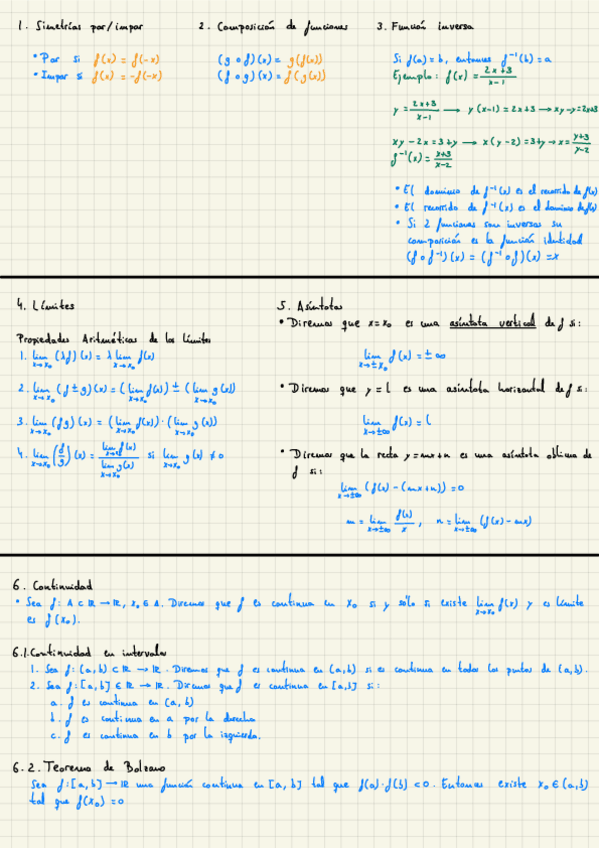 1. Simetrías par/impar
• Par si f(x) = f(-x)
• Impar si f(x) = -f(-x)
2. Composición de funciones
(g ∘ f)(x) = g(f(x))
(f ∘ g)(x) = f(g(x))
3. Función inversa
Si f(a) = b, entonces f⁻¹(b) = a
Ejemplo: f(x) = (2x+3)/(x-1)
y = (2x+3)/(x-1) → y(x-1) = 2x+3 → xy-y = 2x+3
xy - 2x = 3+y → x(y-2) = 3+y → x = (y+3)/(y-2)
f⁻¹(x) = (x+3)/(x-2)
• El dominio de f⁻¹(x) es el recorrido de f(x)
• El recorrido de f⁻¹(x) es el dominio de f(x)
• Si 2 funciones son inversas su
composición es la función identidad
(f ∘ f⁻¹)(x) = (f⁻¹ ∘ f)(x) = x
4. Límites
Propiedades Aritméticas de los límites
1. lim x→x₀ (λf)(x) = λ lim x→x₀ f(x)
2. lim x→x₀ (f ± g)(x) = (lim x→x₀ f(x)) ± (lim x→x₀ g(x))
3. lim x→x₀ (fg)(x) = (lim x→x₀ f(x)) · (lim x→x₀ g(x))
4. lim x→x₀ (f/g)(x) = (lim x→x₀ f(x))/(lim x→x₀ g(x)) si lim x→x₀ g(x) ≠ 0
5. Asíntotas
• Diremos que x = x₀ es una asíntota vertical de f si:
lim x→±x₀ f(x) = ± ∞
• Diremos que y = l es una asíntota horizontal de f si:
lim x→±∞ f(x) = l
• Diremos que la recta y = mx+n es una asíntota oblicua de
f si:
lim x→±∞ (f(x) - (mx+n)) = 0
m = lim x→±∞ f(x)/x , n = lim x→±∞ (f(x) - mx)
6. Continuidad
• Sea f: A ⊂ ℝ → ℝ, x₀ ∈ A. Diremos que f es continua en x₀ si y sólo si existe lim x→x₀ f(x) y es límite
es f(x₀).
6.1. Continuidad en intervalos
1. Sea f: (a,b) ⊂ ℝ → ℝ. Diremos que f es continua en (a,b) si es continua en todos los puntos de (a,b).
2. Sea f: [a,b] ∈ ℝ → ℝ. Diremos que f es continua en [a,b] si:
a. f es continua en (a,b)
b. f es continua en a por la derecha
c. f es continua en b por la izquierda.
6.2. Teorema de Bolzano
Sea f: [a,b] → ℝ una función continua en [a,b] tal que f(a)·f(b) < 0. Entonces existe x₀ ∈ (a,b)
tal que f(x₀) = 0